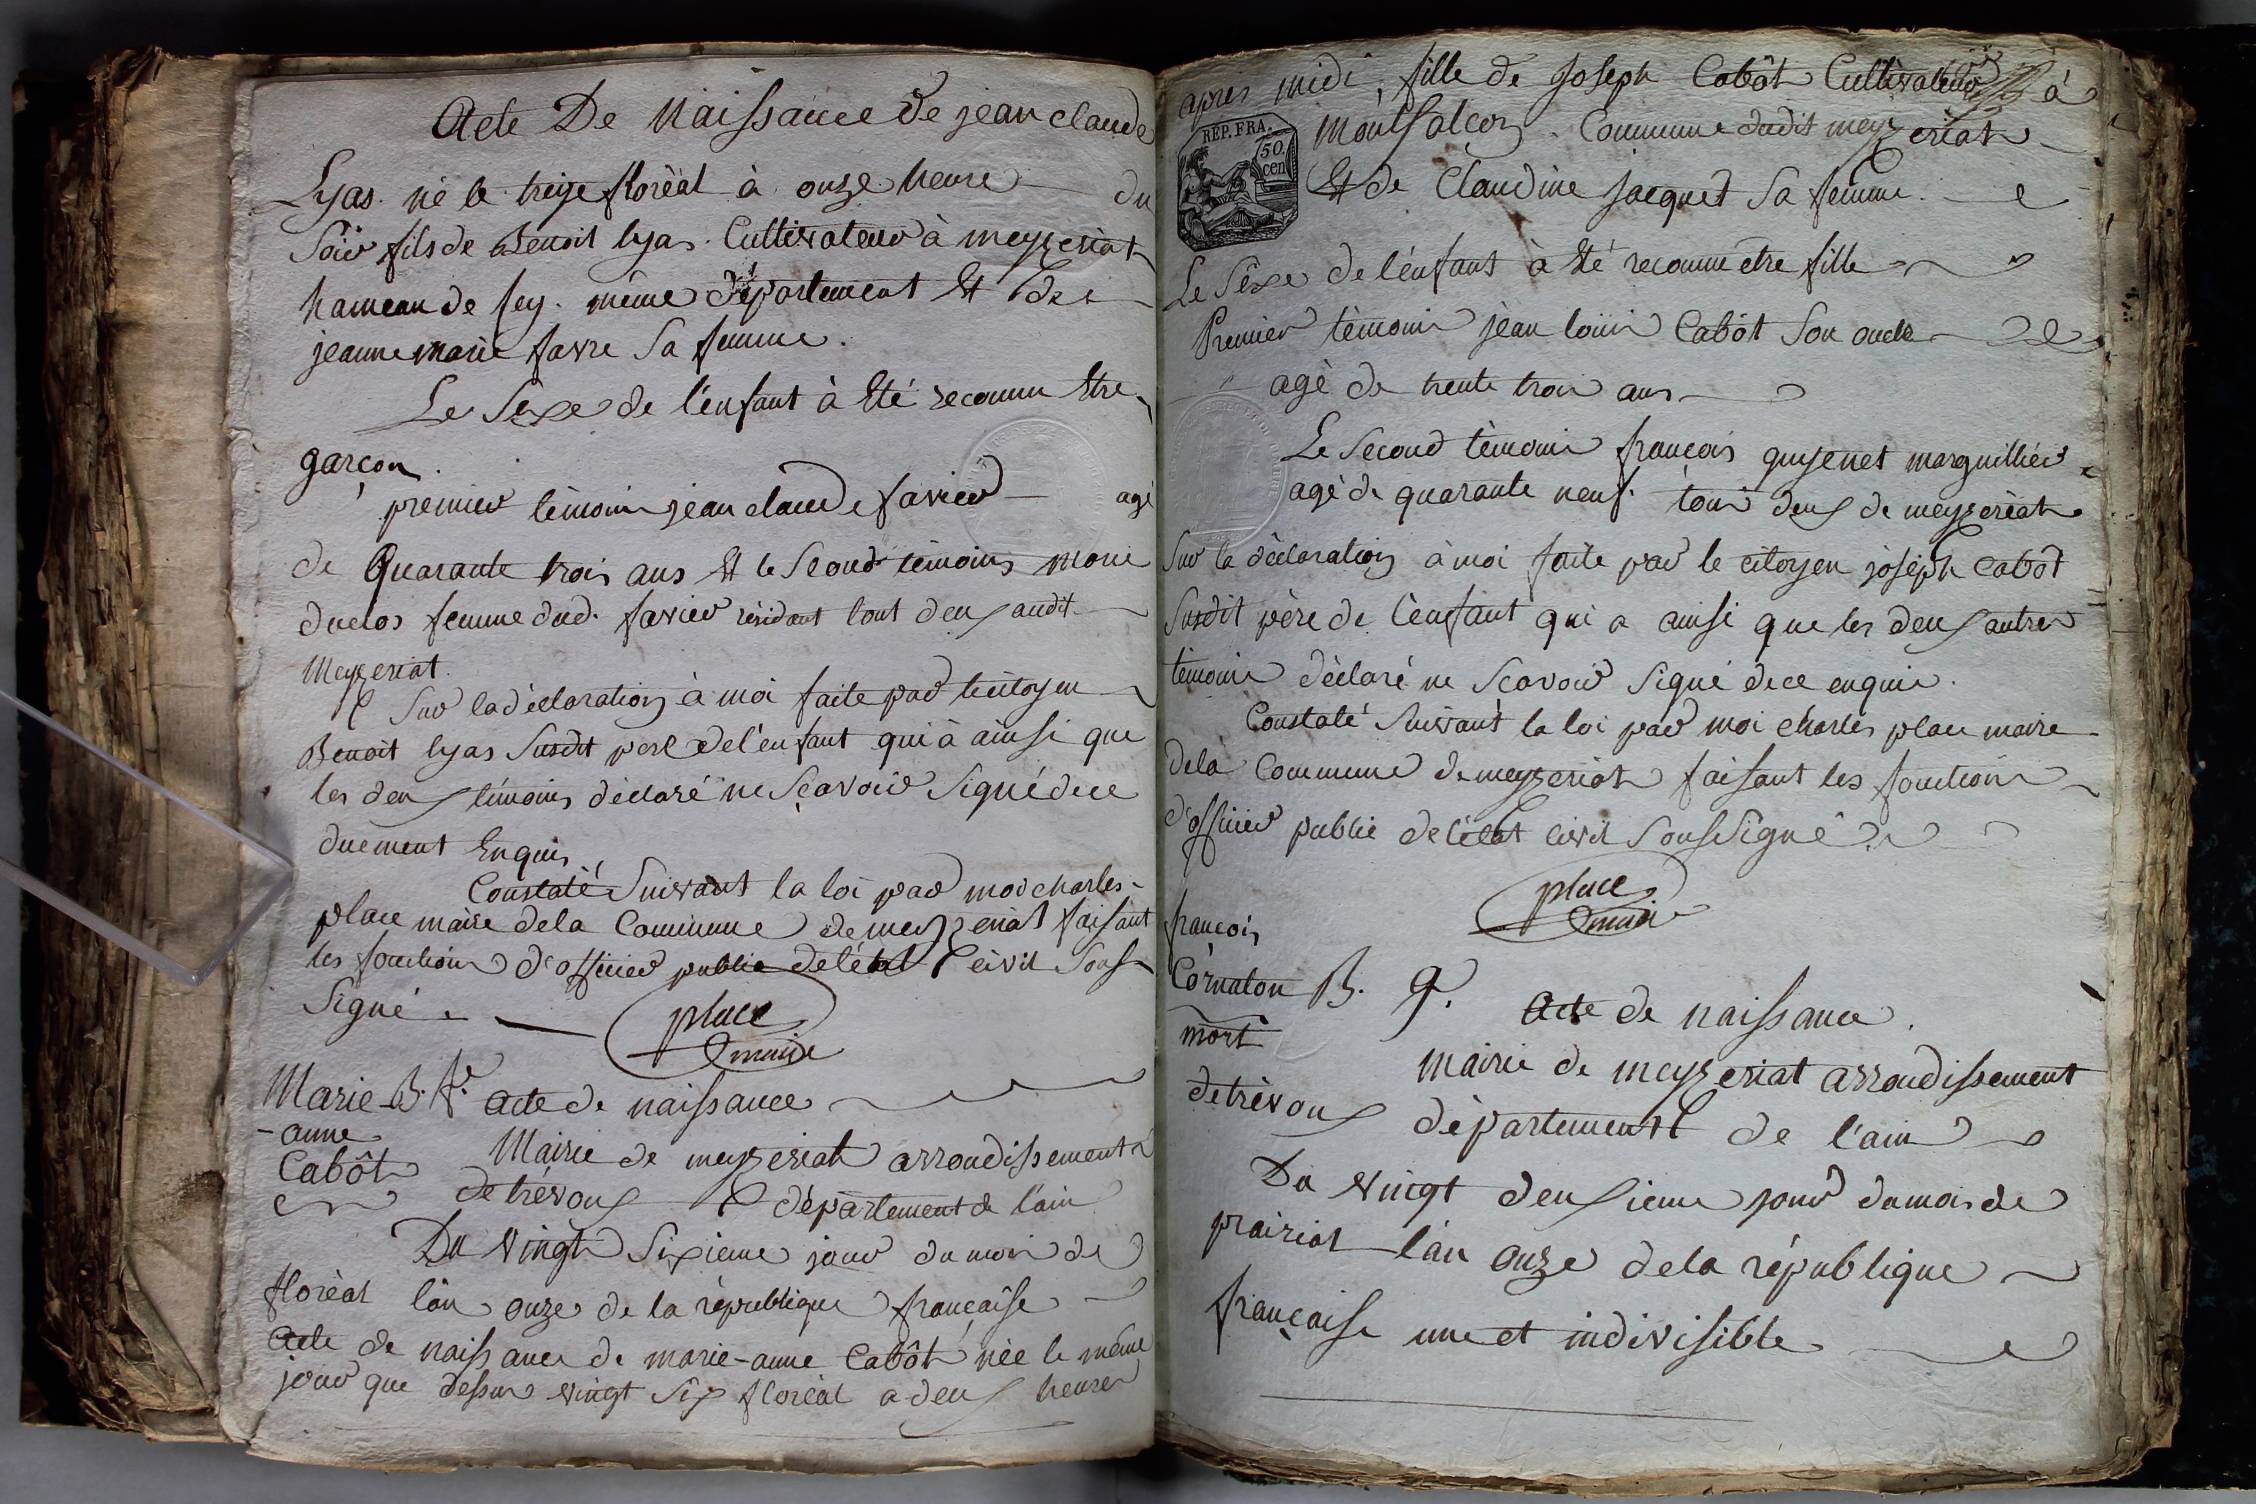 Acte De Naissance de jean claude
Lyas né le treize floréal à onze heure du
soir fils de Benoit lyas Cultivateur à meyzeriat
hameau de fey. même département Et de
jeanne marie favre Sa femme.
Le Sexe de l'énfant à Eté reconnu Etre
garçon.
premier témoin jean claude favier agé
de Quarante trois ans Et le Second témoins marie
duclos femme dud. favier résidant tout deux audit
Meyzeriat.
Sur la déclaration à moi faite par le citoyen
Benoit lyas Susdit pere de l'enfant qui à ainsi que
les deux témoins déclaré ne Sçavoir Signé de ce
duement Enquis
Constaté Suivant la loi par moi charles
place maire dela Commune de meyzeriat faisant
les fonctions d'officier public de l'état civil Sous
Signé
place
maire
Marie B. Fe. acte de naissance
-anne
Cabôt
Mairie de meyzeriat arrondissement
de trévoux département de l'ain
Du Vingt Sixieme jour du mois de
floréal l'an onze de la république française
Acte de naissance de marie-anne Cabôt née le même
jour que dessus vingt Six floréal a deux heures
après midi, fille de Joseph Cabôt Cultivateur à
REP. FRA.
50.
cen
montfalcon Commune dudit meyzeriat
Et de Claudine jacquet Sa femme.
Le Sexe de l'énfant à Eté reconnu etre fille
Premier témoin jean louis Cabôt Son oncle
agé de trente trois ans
Le Second témoin françois guyenet marguillier
agé de quarante neuf. tous deux de meyzeriat
Sur la déclaration à moi faite par le citoyen joséph Cabôt
Susdit père de l'énfant qui a ainsi que les deux autres
témoins déclaré ne Scavoir Signé de ce enquis.
Constaté Suivant la loi par moi charles place maire
dela Commune de meyzeriat faisant les fonctions
d'officier public de l'état civil SousSigné
place
maire
françois
Cornaton B. G.
mort
Acte de naissance.
Mairie de meyzeriat arrondissement
de trévoux département de l'ain
Du vingt deuxieme jour du mois de
prairial l'an onze dela république
française une et indivisible